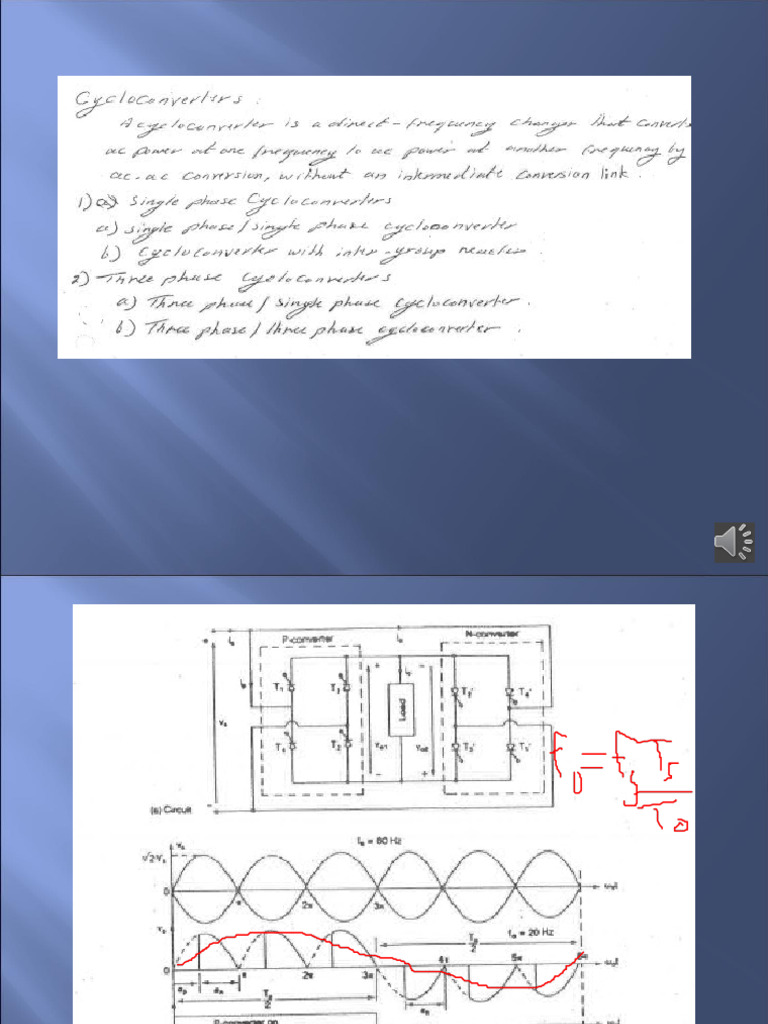 Cycloconverters :
A cycloconverter is a direct-frequency changer that converts
ac power at one frequency to ac power at another frequency by
ac-ac conversion, without an intermediate conversion link.
1) a) Single phase Cycloconverters
a) single phase/single phase cycloconverter
b) Cycloconverter with inter-group reactor.
2) Three phase Cycloconverters
a) Three phase/single phase cycloconverter.
b) Three phase/three phase cycloconverter.
P-converter
N-converter
T₁
T₃
T₄
T₂
Load
T₂'
T₄'
T₃'
T₁'
vₛ
iₛ
vₒ₁
vₒ₂
iₒ
(a) Circuit
vₛ
fₛ = 60 Hz
√2 Vₛ
0
π
2π
3π
fₒ = 20 Hz
Tₒ/2
0
π
2π
3π
4π
5π
6π
Tₒ/2
P-converter on